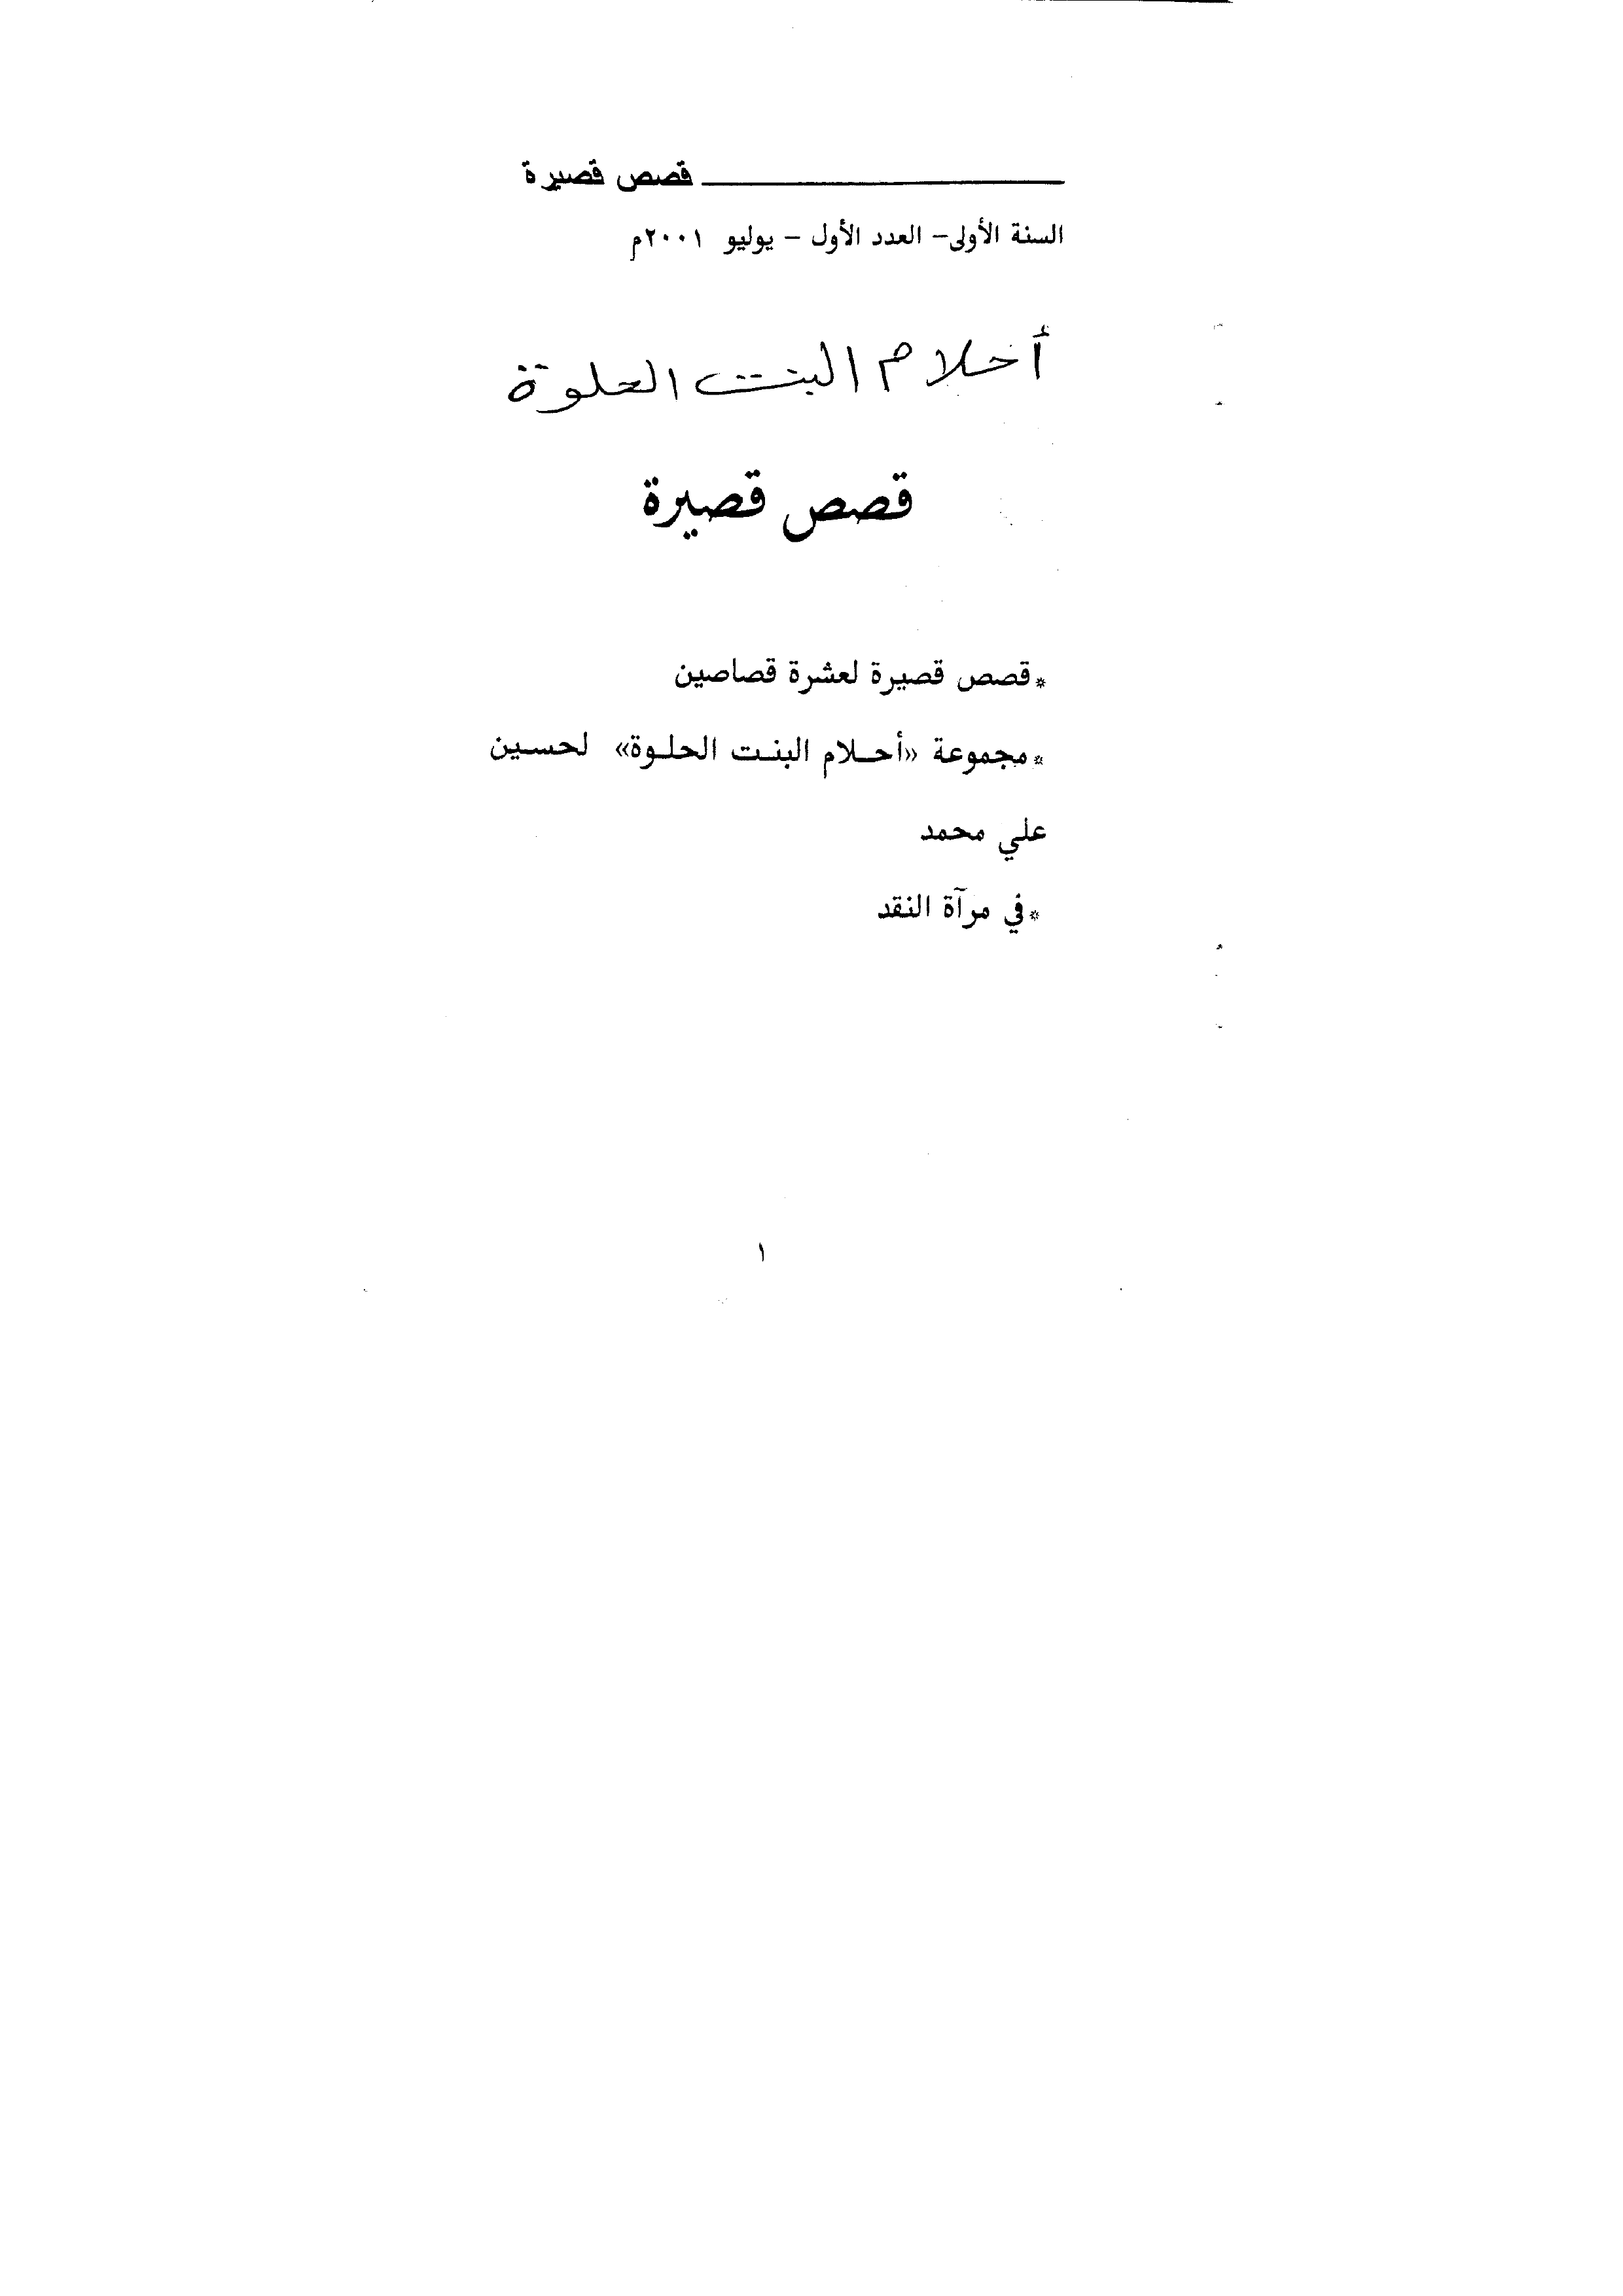 قصص قصيرة
السنة الأولى- العدد الأول - يوليو ٢٠٠١م
أحلام البنت الحلوة
قصص قصيرة
*قصص قصيرة لعشرة قصاصين
*مجموعة «أحلام البنت الحلوة» لحسين
علي محمد
*في مرآة النقد
١